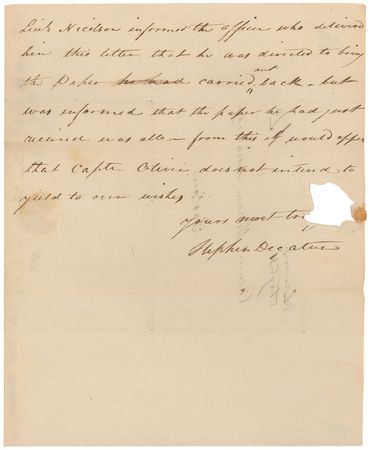 Lieut Nicolson informed the officer who delivered
him this letter that he was directed to bring
the paper he had carried out back. but
was informed that the paper he had just
received was all from this it would appear
that Capt. Oliver does not intend to
yield to our wishes
Yours most
Stephen Decatur